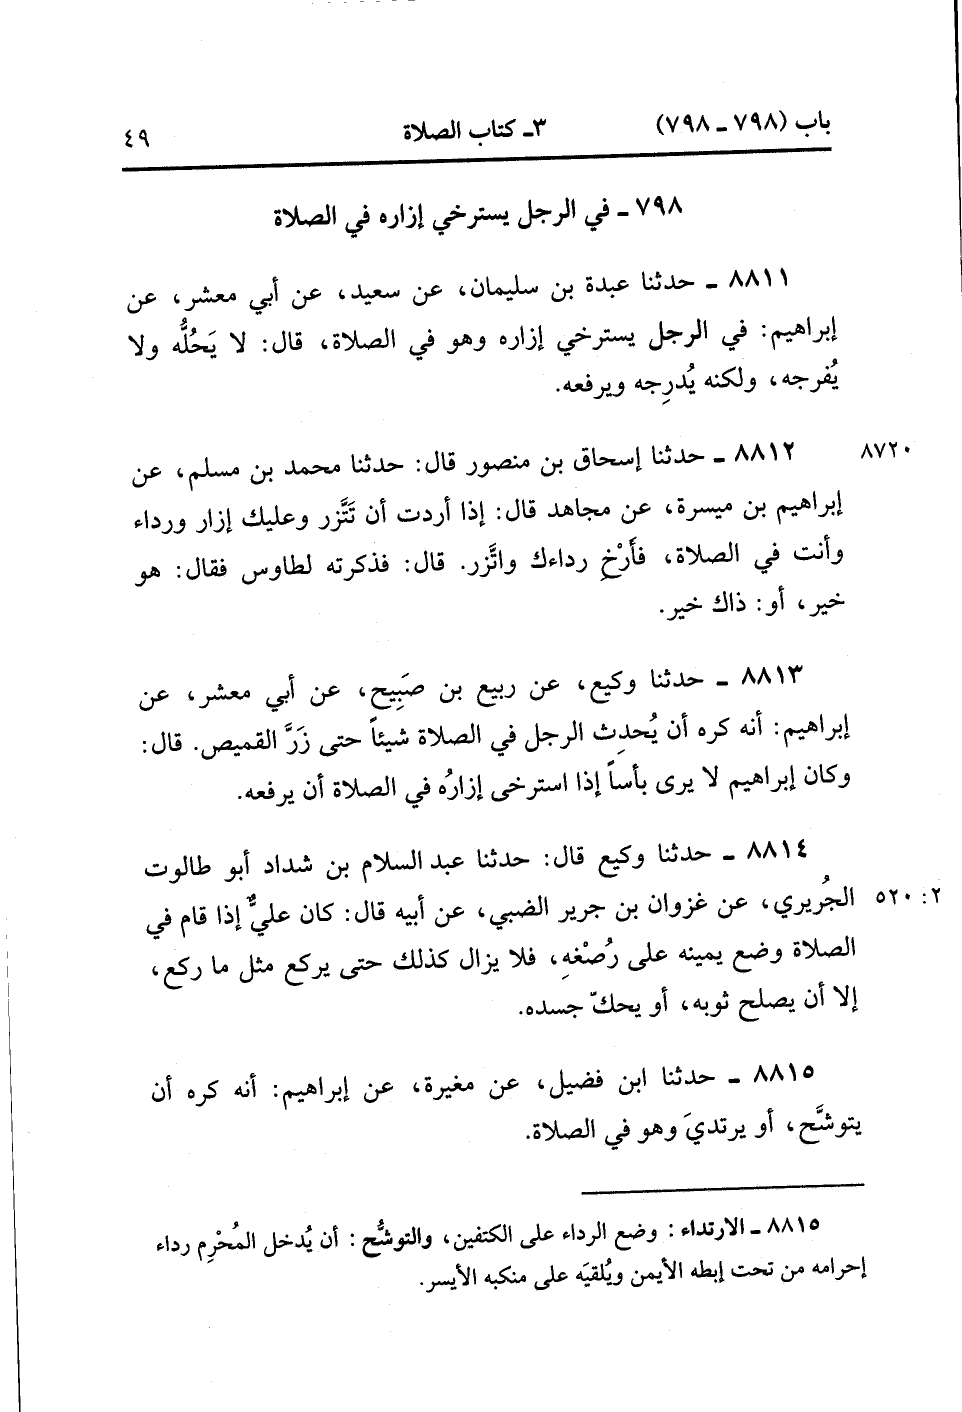 باب (٧٩٨ ـ ٧٩٨) ٣ـ كتاب الصلاة ٤٩
٧٩٨ ـ في الرجل يسترخي إزاره في الصلاة
٨٨١١ ـ حدثنا عبدة بن سليمان، عن سعيد، عن أبي معشر، عن
إبراهيم: في الرجل يسترخي إزاره وهو في الصلاة، قال: لا يَحُلُّه ولا
يُفرجه، ولكنه يُدرِجه ويرفعه.
٨٧٢٠ ٨٨١٢ ـ حدثنا إسحاق بن منصور قال: حدثنا محمد بن مسلم، عن
إبراهيم بن ميسرة، عن مجاهد قال: إذا أردت أن تَتَّزر وعليك إزار ورداء
وأنت في الصلاة، فأَرْخِ رداءك واتَّزر. قال: فذكرته لطاوس فقال: هو
خير، أو: ذاك خير.
٨٨١٣ ـ حدثنا وكيع، عن ربيع بن صَبِيح، عن أبي معشر، عن
إبراهيم: أنه كره أن يُحدِث الرجل في الصلاة شيئاً حتى زَرَّ القميص. قال:
وكان إبراهيم لا يرى بأساً إذا استرخى إزارُه في الصلاة أن يرفعه.
٨٨١٤ ـ حدثنا وكيع قال: حدثنا عبد السلام بن شداد أبو طالوت
٢: ٥٢٠ الجُريري، عن غزوان بن جرير الضبي، عن أبيه قال: كان عليٌّ إذا قام في
الصلاة وضع يمينه على رُصْغهِ، فلا يزال كذلك حتى يركع مثل ما ركع،
إلا أن يصلح ثوبه، أو يحكّ جسده.
٨٨١٥ ـ حدثنا ابن فضيل، عن مغيرة، عن إبراهيم: أنه كره أن
يتوشَّح، أو يرتديَ وهو في الصلاة.
٨٨١٥ ـ الارتداء: وضع الرداء على الكتفين، والتوشُّح: أن يُدخل المُحْرِم رداء
إحرامه من تحت إبطه الأيمن ويُلقيَه على منكبه الأيسر.